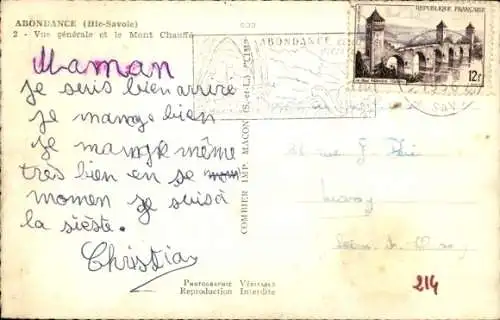 ABONDANCE (Hte-Savoie)
2 - Vue générale et le Mont Chauffé
Maman
je suis bien arivé
je mange bien
je mange même
très bien en se
momen je suis à
la sièste.
Christian
COMBIER IMP. MACON (S.-et-L.)
Photographie Véritable
Reproduction Interdite
ABONDANCE
REPUBLIQUE FRANÇAISE
12f
rue J.
214